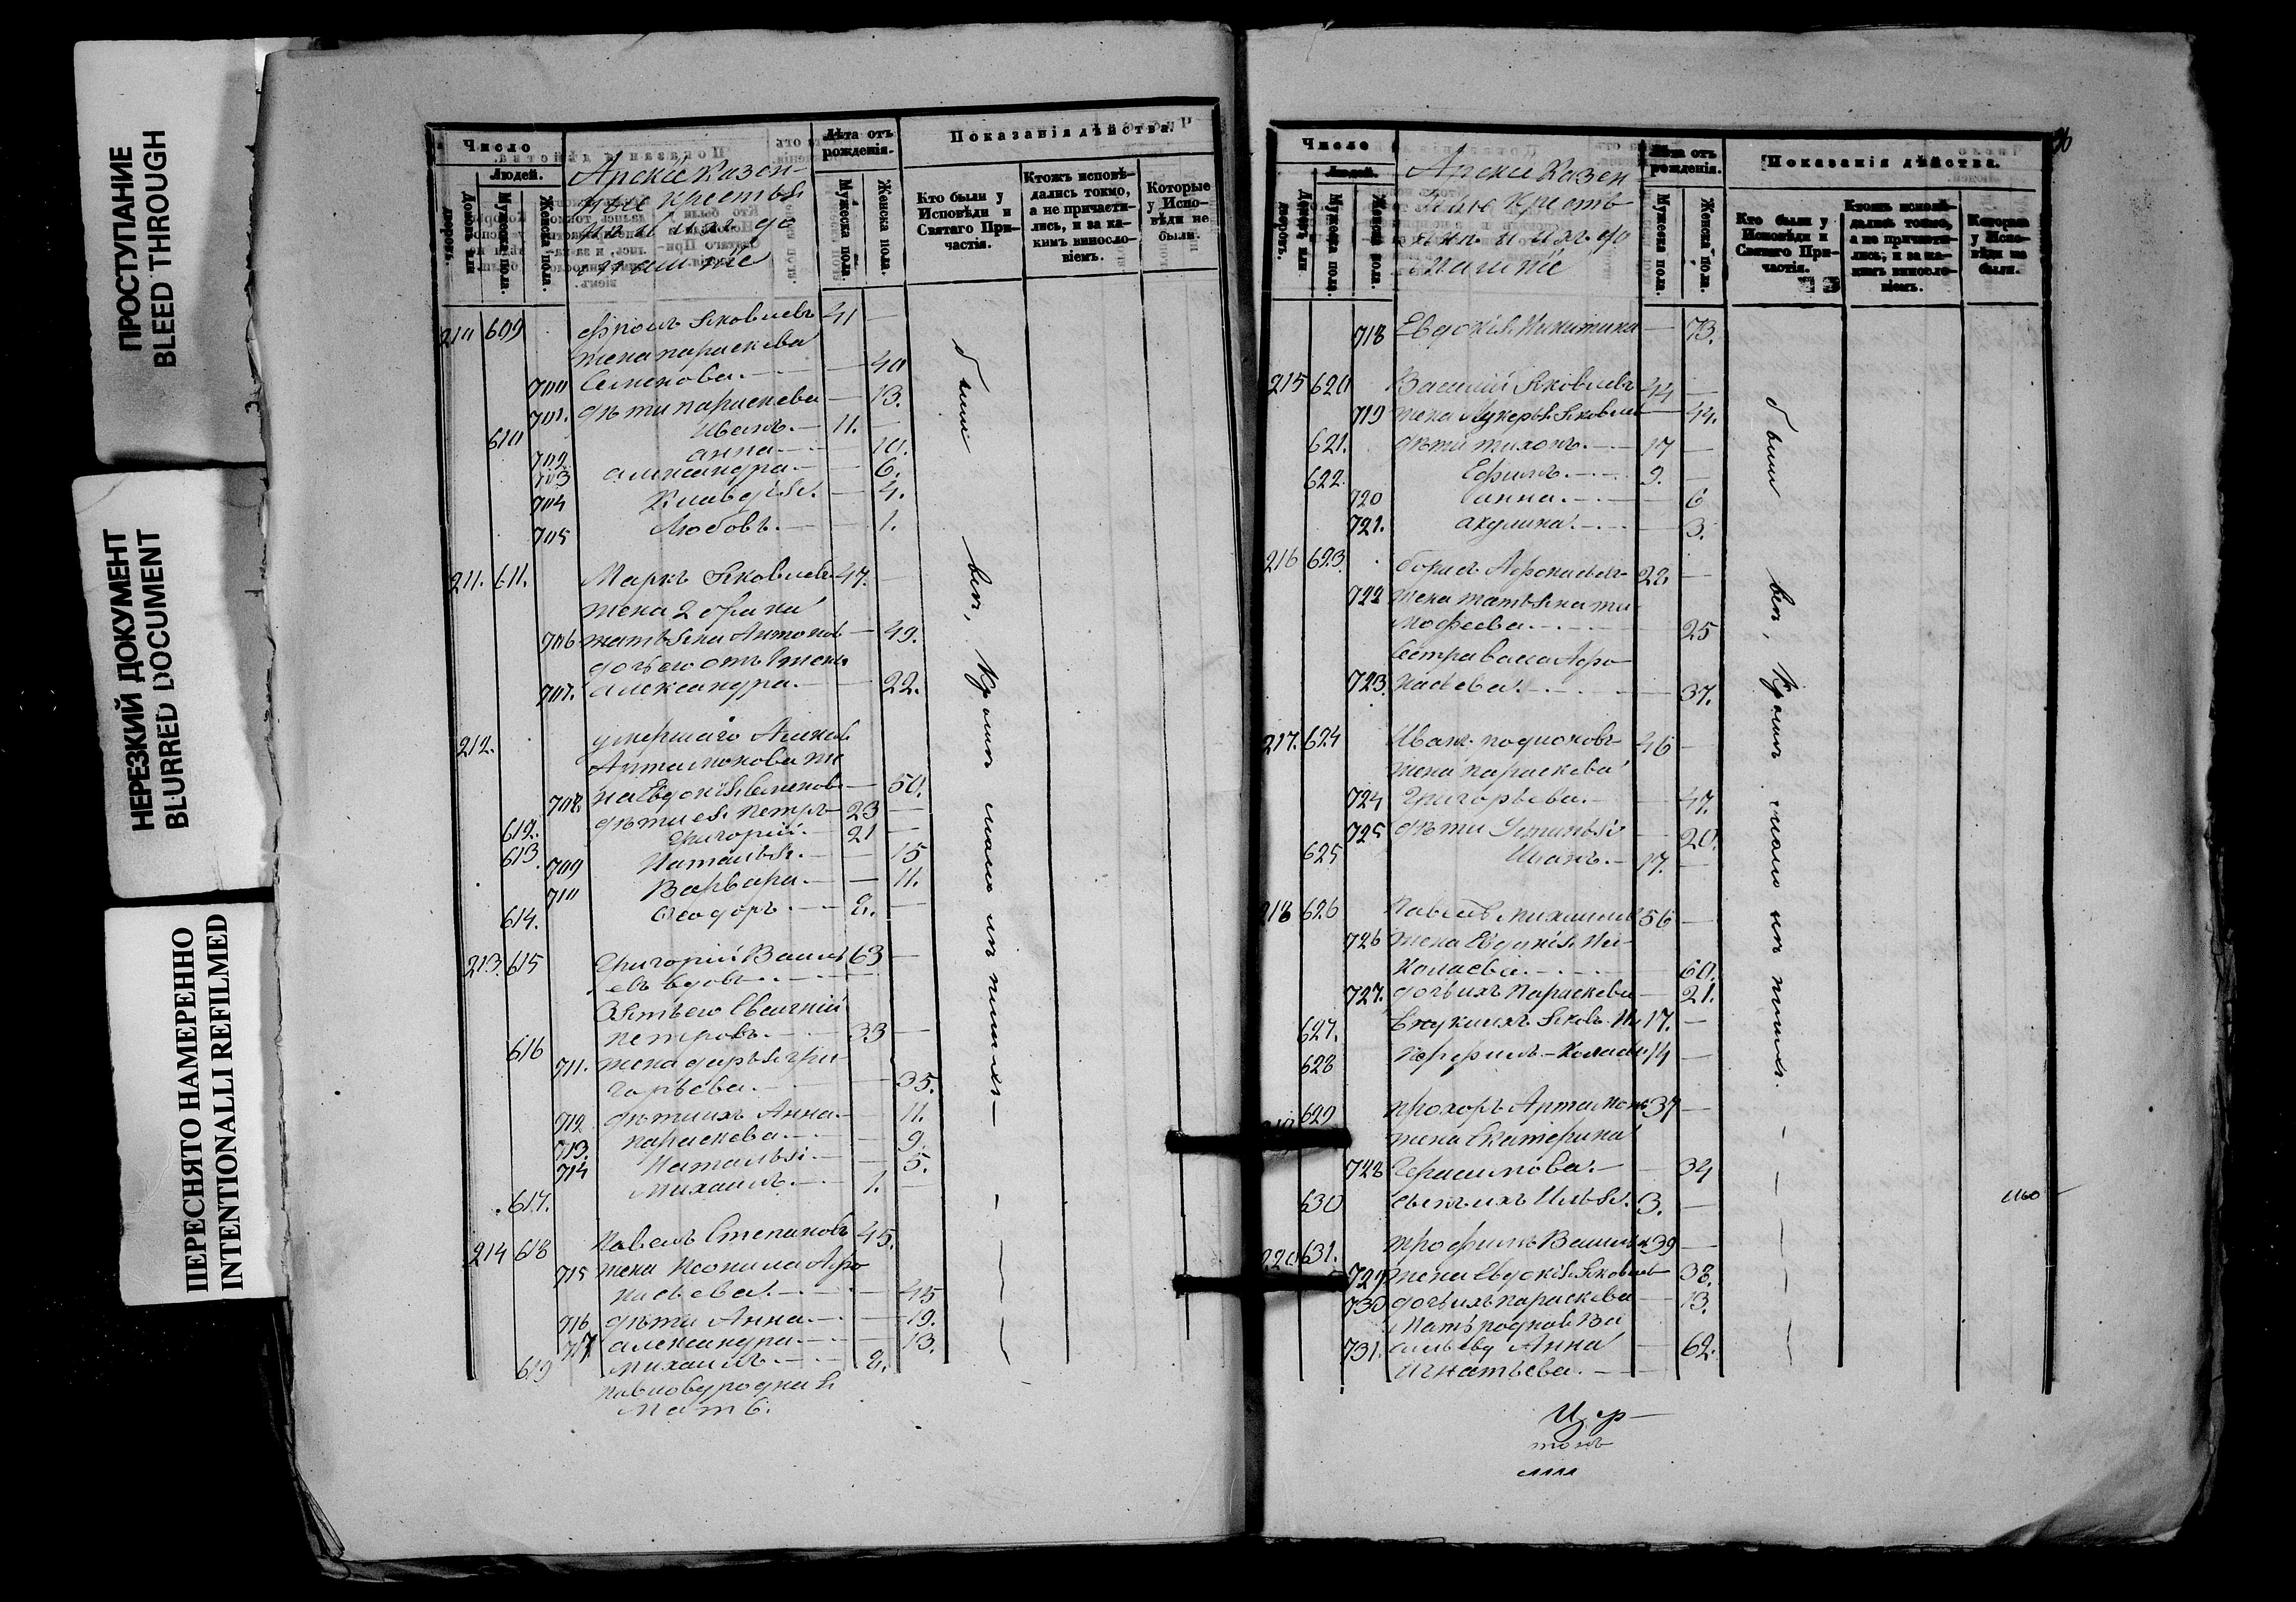 ПРОСТУПАНИЕ
BLEED THROUGH
НЕРЕЗКИЙ ДОКУМЕНТ
BLURRED DOCUMENT
ПЕРЕСНЯТО НАМЕРЕННО
INTENTIONALLI REFILMED
Число
Людей.
Домовъ или дворовъ.
Мужеска пола.
Женска пола.
Арскіе Казен-
ные Крестья
не и ихъ до
машніе
Лѣта отъ рожденія.
Мужеска пола.
Женска пола.
Показанія дѣйства.
Кто были у Исповѣди и Святаго Причастія.
Ктожъ исповѣдались токмо, а не причастились, и за какимъ винословіемъ.
Которые у Исповѣди не были.
210 609 Фролъ Яковлевъ 41 —
жена параскева
700 Семенова. — 40
701. дѣти параскева — 13.
610 Иванъ. — 11. —
702 анна. — 10.
703 александра. — 6.
704 Клавдія. — 4.
705 Любовь. — 1.
211. 611. Маркъ Яковлевъ 47.
жена 2 брака
706 татьяна Антонов — 49.
дочь его отъ 1 жены
707. александра. — 22.
212. умершаго
Артамонова же
708. на Евдокія Семенов — 50.
612. дѣти ея Петръ 23 —
613 Григорій. — 21 —
709 Наталья. — 15
710 Варвара. — 11.
614. Ѳеодоръ. — 2. —
213. 615 Григорій Васил 63 —
евъ вдовъ
Зять его Евгеній
616 петровъ. — 33 —
711. жена дарья гри-
горьева. — 35.
712 дѣти ихъ Анна. — 11.
713. параскева. — 9.
714 Наталья. — 5.
617. Михаилъ. — 1.
214 618 Павелъ Степановъ 45.
715 жена Неонила Афо
насьева. — 45
716 дѣти Анна. — 19.
717 александра. — 13.
619 Михаилъ. — 2.
Павлову родная
Мать.
были
всѣ,
Число
Людей.
Домовъ или дворовъ.
Мужеска пола.
Женска пола.
Арскіе Казен
Кресть
яне и ихъ до
машніе
Лѣта отъ рожденія.
Мужеска пола.
Женска пола.
Показанія дѣйства.
Кто были у Исповѣди и Святаго Причастія.
Ктожъ исповѣдались токмо, а не причастились, и за какимъ винословіемъ.
Которые у Исповѣди не были.
718 Евдокія Никитина — 73.
215 620 Василій Яковлевъ 44 —
719 жена Лукерья Яковлев — 44.
621. дѣти тихонъ. — 17 —
622. Ефимъ. — 9. —
720 анна. — 6
721. акулина. — 3.
216 623. борисъ Афонасьевъ 22. —
722 жена татьяна ти-
мофеева. — 25
Сестра Афо
723. насьева. — 37.
217. 624 Иванъ 46 —
жена параскева
724 Григорьева. — 47.
725 дѣти Устинья — 20.
625 Иванъ. — 17. —
218 626 Павелъ Михаилов 56 —
726 жена Евдокія Ни-
колаева. — 60.
727. дочь ихъ Параскева — 21.
627. Внуки ихъ Яковъ Ни 17. —
628 Порфирій — Колаевы 14 —
629 Прохоръ Артамонов 37 —
жена Екатерина
728 Герасимова. — 34
630 сынъ ихъ Илья. 3. —
220 631. трофимъ Васильев 39 —
729 жена Евдокія Яковлев 38.
730 дочь ихъ параскева — 13.
Мать родная Ва
731. сильеву Анна — 62.
Игнатьева. —
были
всѣ,